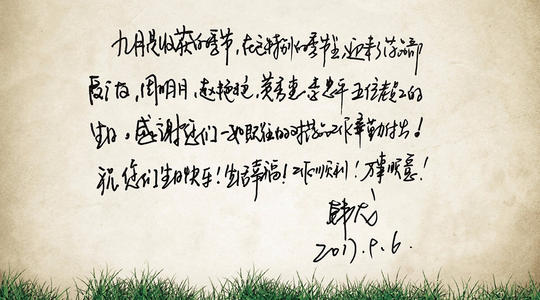 九月是收获的季节，在这特别的季节里，迎来了
周明月，赵艳艳，黄秀惠，李忠平五位员工的
生日。感谢您们一如既往的对工作辛勤付出！
祝您们生日快乐！生活幸福！工作顺利！万事顺意！
2017.9.6.